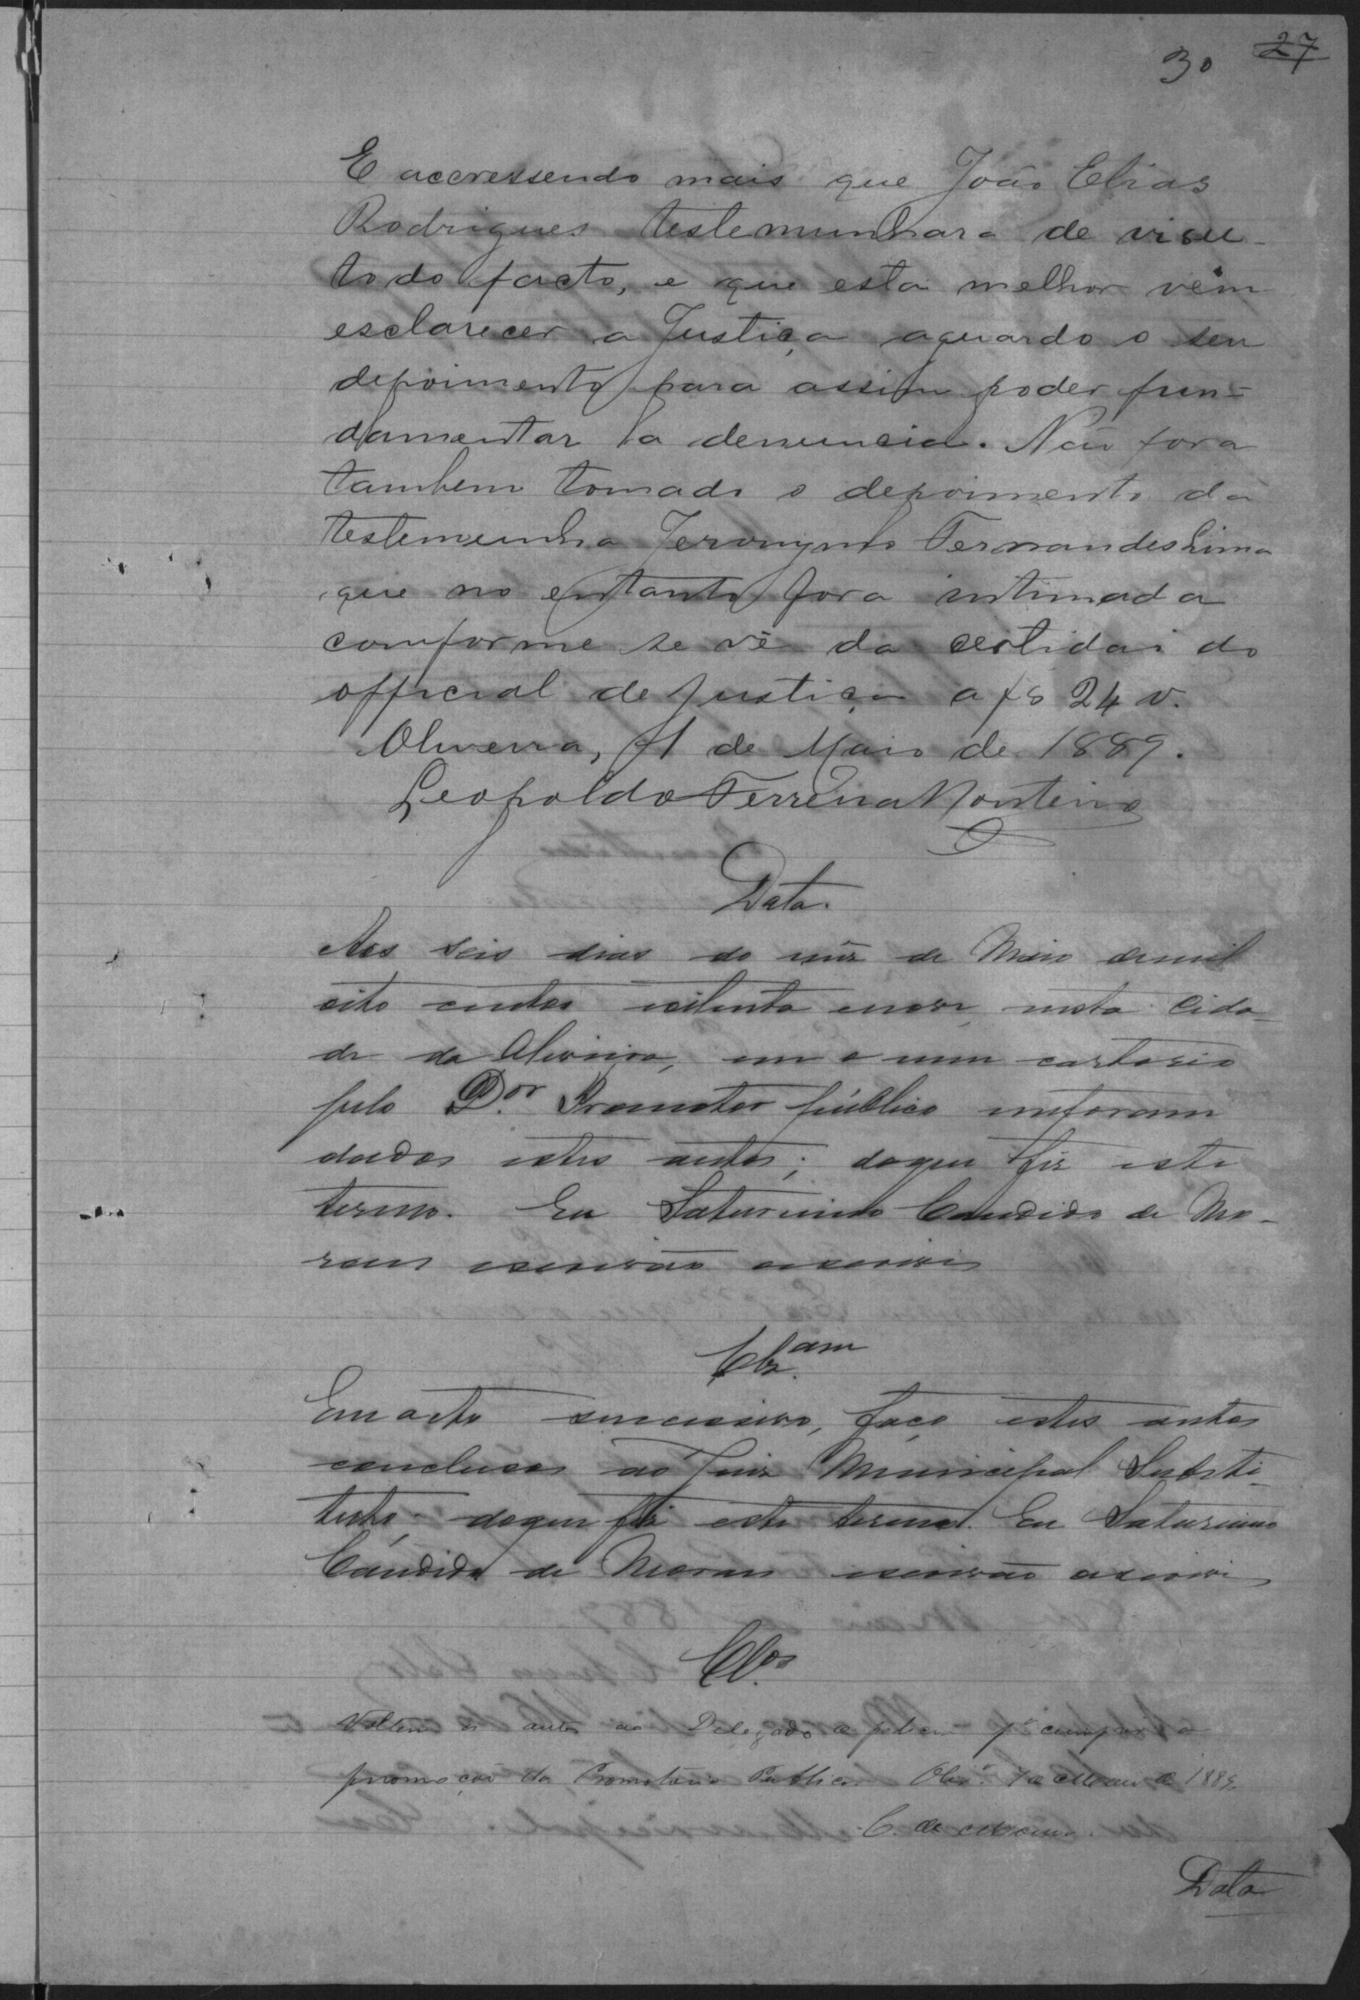 30 27
E accressendo mais que João Elias
Rodrigues testemunhara de visu
todo facto, e que esta melhor vem
esclarecer a Justiça aguardo o seu
depoimento para assim poder fun-
damentar a denuncia. Não fora
tambem tomado o depoimento da
testemunha Jeronymo Fernandes Lima
que no entanto fora intimada
comforme se vê da certidão do
official de Justiça a fs 24 v.
Oliveira, de Maio de 1889.
Leopoldo Ferreira Monteiro
Data.
Aos seis dias do mez de Maio demil
oito centos eoitenta enove, nesta cida-
de da Oliveira, em o meu cartorio
pelo Dor. Promotor público meforam
dados estes autos; doque fiz este
termo. Eu Saturnino Candido de Mo-
raes escrivão escrevi
Clz.am
Em acto successivo, faço estes autos
conclusos ao Juiz Municipal Substi-
tuto; doque fiz este termo. Eu Saturnino
Cándido de Moraes escrivão escrevi
Clos
Voltem os autos ao Delegado de policia pa cumprir a
promoção da Promotoria Publica. Olivra. 7 de Maio de 1889
C. de
Data